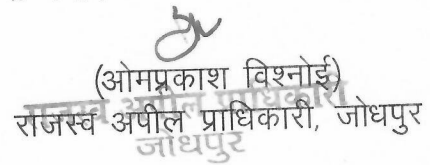 (ओमप्रकाश विश्नोई)
राजस्व अपील प्राधिकारी
राजस्व अपील प्राधिकारी, जोधपुर
जोधपुर